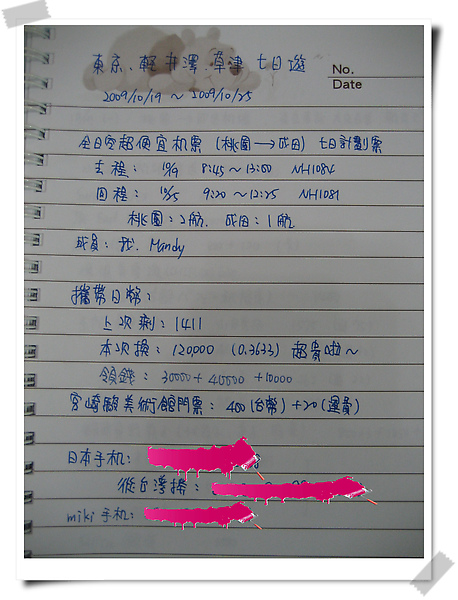 東京、輕井澤、草津 七日遊
No.
Date
2009/10/19 ~ 2009/10/25
全日空超便宜机票 (桃園→成田) 七日計劃票
去程: 10/19 8:45~13:00 NH1084
回程: 10/25 9:20~12:25 NH1081
桃園:2航. 成田:1航
成員: 我. Mandy
攜帶日幣:
上次剩: 1411
本次換: 120,000 (0.3633) 超貴啦~
領錢: 30000+ 40000 +10000
宮崎駿美術館門票: 400(台幣)+20(運費)
日本手机:
從台灣播:
miki 手机: